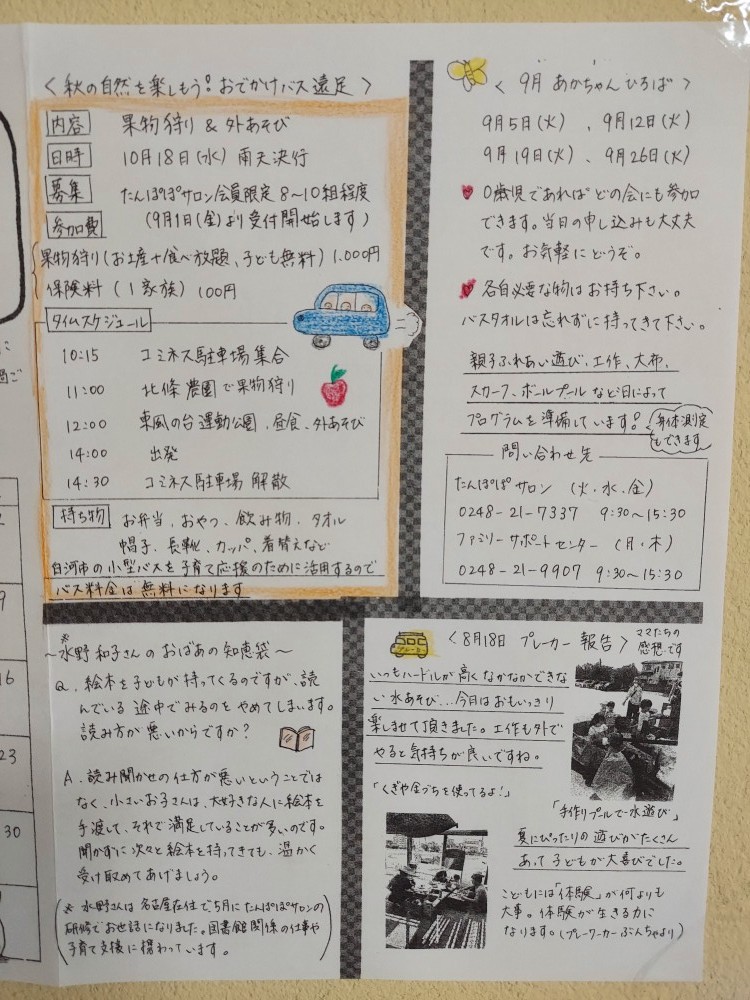 〈秋の自然を楽しもう!おでかけバス遠足〉
内容 果物狩り&外あそび
日時 10月18日(水) 雨天決行
募集 たんぽぽサロン会員限定 8〜10組程度
(9月1日(金)より受付開始します)
参加費
果物狩り(お土産+食べ放題、子ども無料) 1,000円
保険料(1家族) 100円
タイムスケジュール
10:15 コミネス駐車場集合
11:00 北條農園で果物狩り
12:00 東風の台運動公園、昼食、外あそび
14:00 出発
14:30 コミネス駐車場 解散
持ち物 お弁当、おやつ、飲み物、タオル
帽子、長靴、カッパ、着替えなど
白河市の小型バスを子育て応援のために活用するので
バス料金は無料になります
〈9月 あかちゃんひろば〉
9月5日(火)、9月12日(火)
9月19日(火)、9月26日(火)
0歳児であればどの会にも参加
できます。当日の申し込みも大丈夫
です。お気軽にどうぞ。
各自必要な物はお持ち下さい。
バスタオルは忘れずに持ってきて下さい。
親子ふれあい遊び、工作、大布、
スカーフ、ボールプールなど日によって
プログラムを準備しています!
身体測定
もできます
問い合わせ先
たんぽぽサロン (火・水・金)
0248-21-7337 9:30〜15:30
ファミリーサポートセンター (月・木)
0248-21-9907 9:30〜15:30
〜※水野和子さんのおばあの知恵袋〜
Q. 絵本を子どもが持ってくるのですが、読
んでいる途中でみるのをやめてしまいます。
読み方が悪いからですか?
A. 読み聞かせの仕方が悪いということでは
なく、小さいお子さんは、大好きな人に絵本を
手渡して、それで満足していることが多いのです。
聞かずに次々と絵本を持ってきても、温かく
受け取めてあげましょう。
(※ 水野さんは名古屋在住で、5月にたんぽぽサロンの
研修でお世話になりました。図書館関係の仕事や
子育て支援に携わっています。)
〈8月18日 プレーカー報告〉
ママたちの
感想です
いつもハードルが高くなかなかできな
い水あそび…今日はおもいっきり
楽しませて頂きました。工作も外で
やると気持ちが良いですね。
「くぎや金づちを使ってるよ!」
「手作りプールで水遊び」
夏にぴったりの遊びがたくさん
あって子どもが大喜びでした。
こどもには「体験」が何よりも
大事。体験が生きる力に
なります。(プレーワーカーぶんちゃより)
に
過ご
2
9
16
23
30